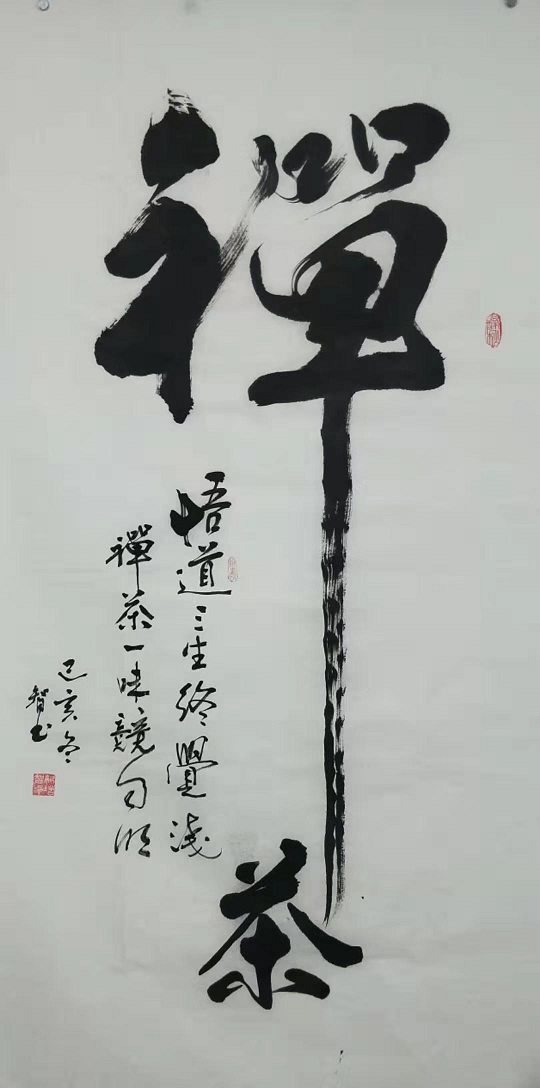 禪茶
悟道三生終覺淺
禪茶一味競自心
己亥冬
智書